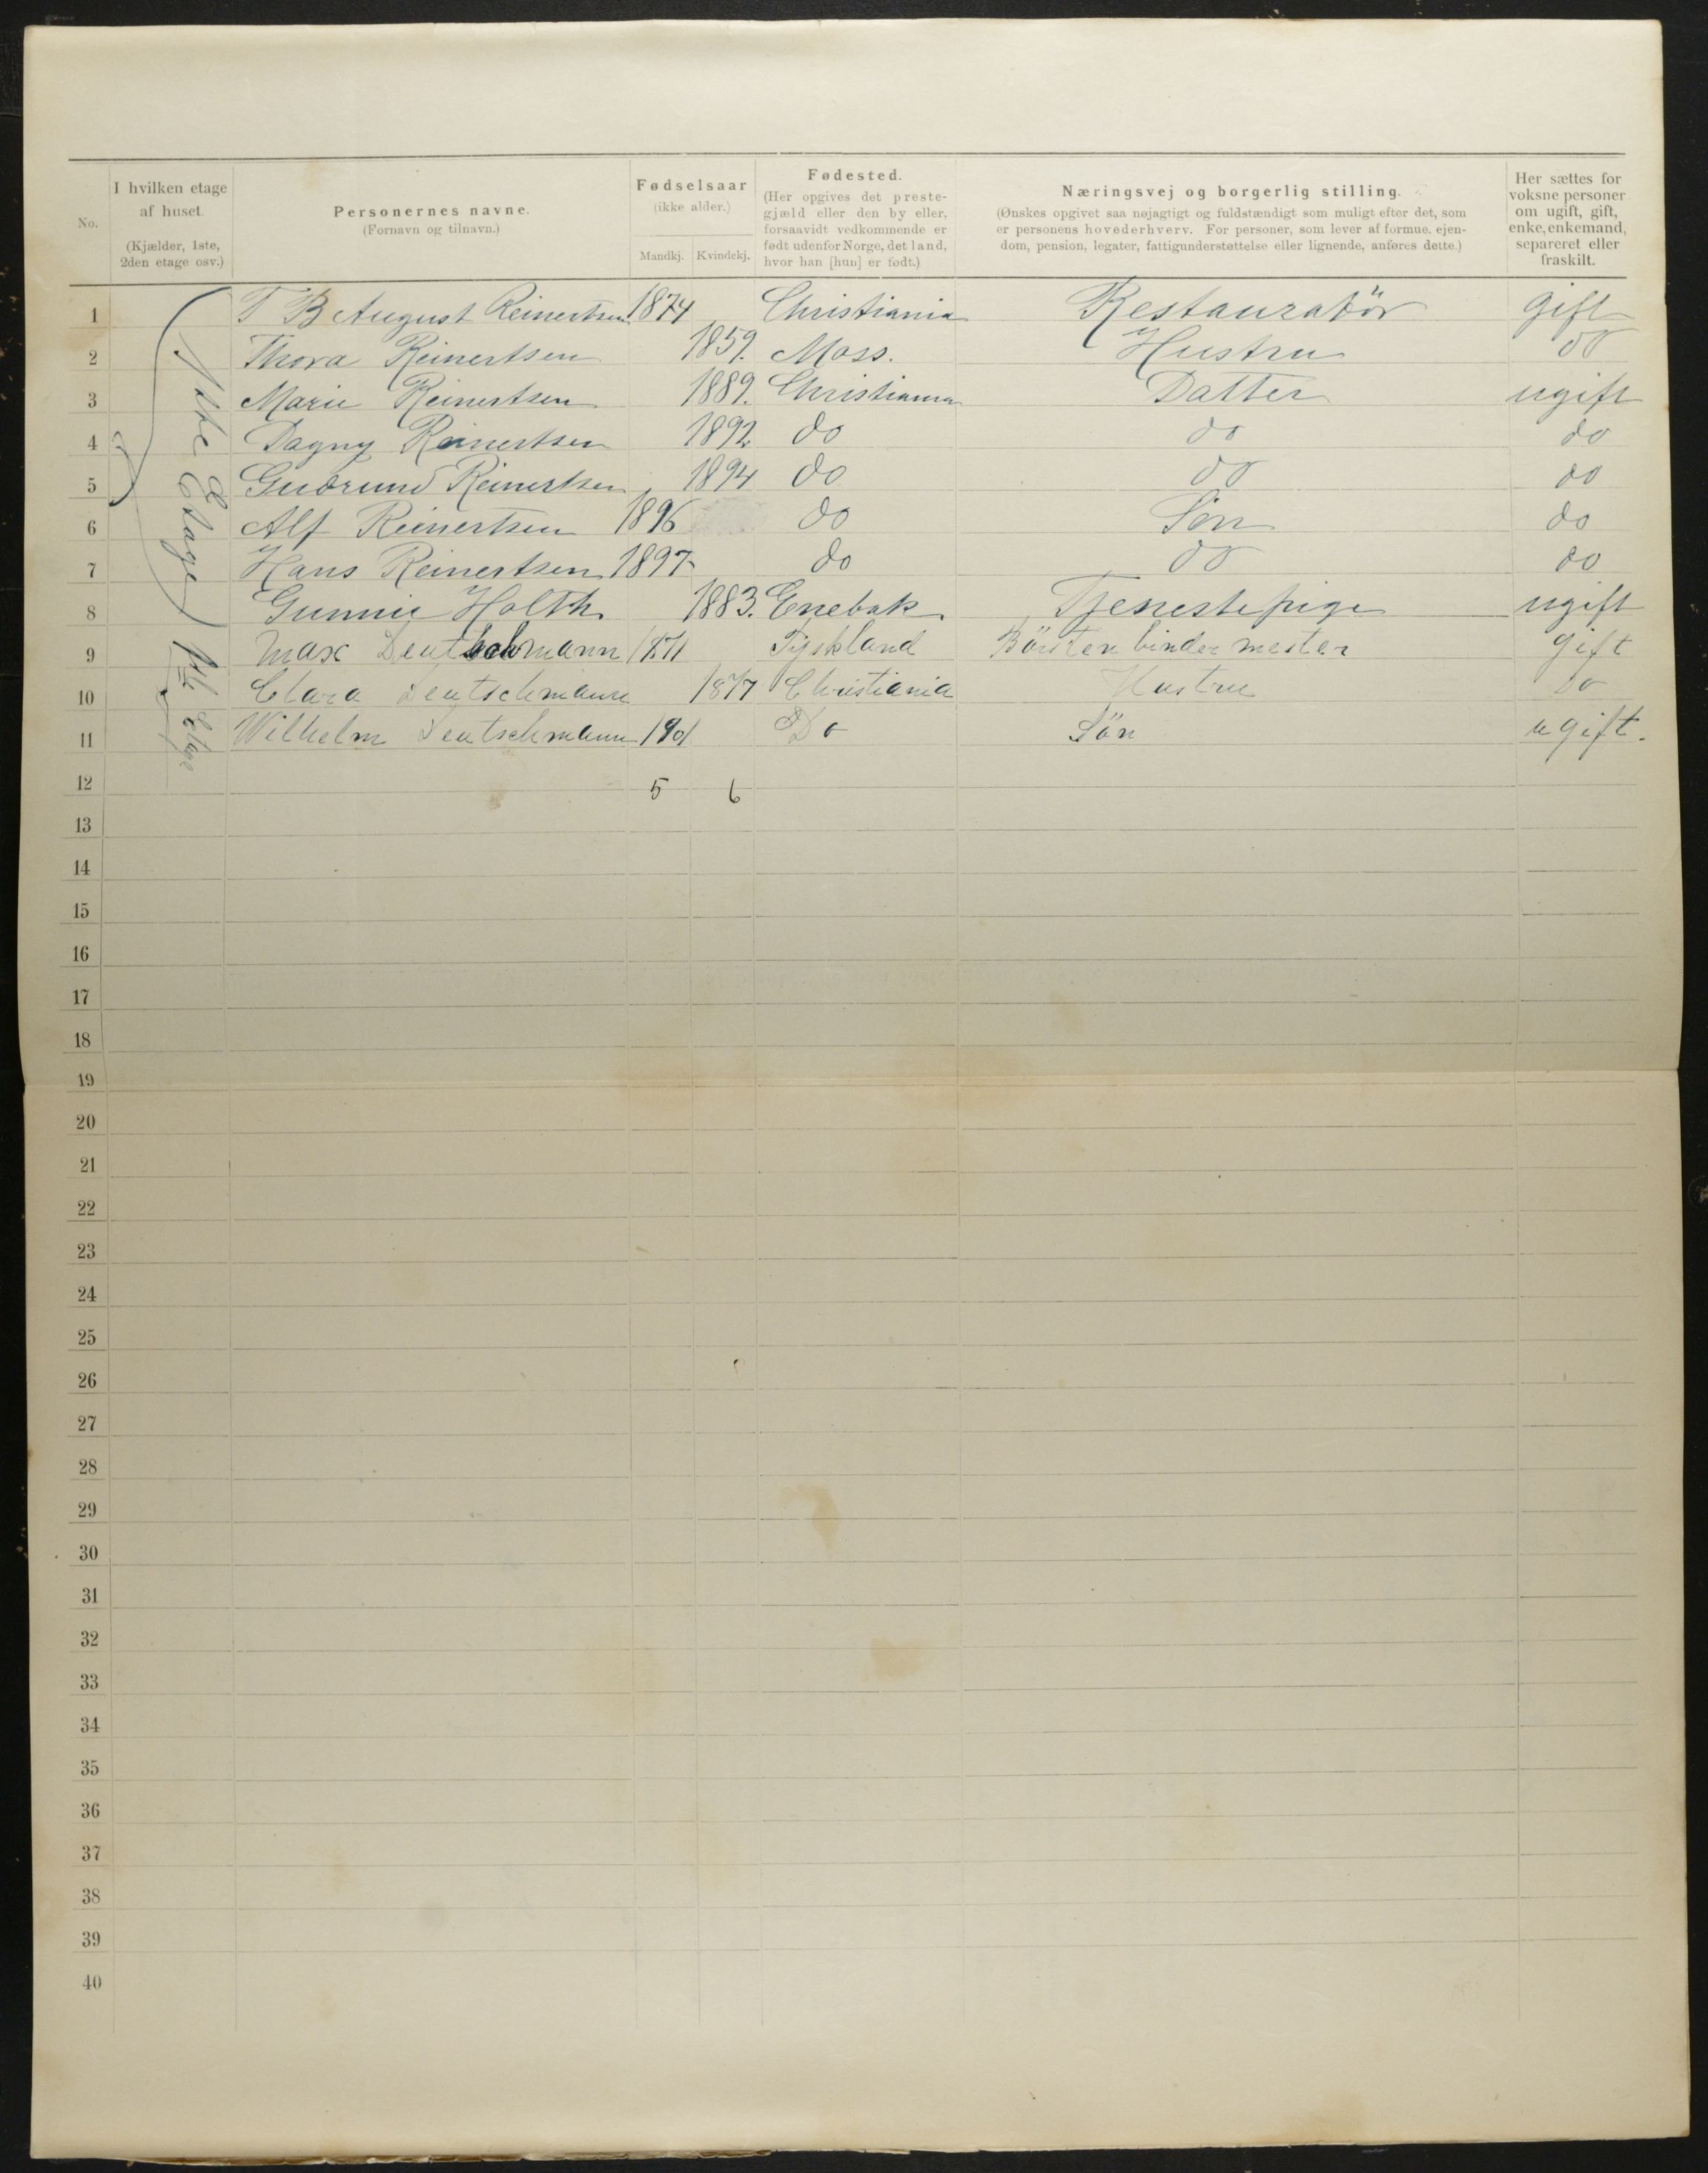 No.
I hvilken etage
af huset.
(Kjælder, 1ste,
2den etage osv.)
Personernes navne.
(Fornavn og tilnavn.)
Fødselsaar
(ikke alder.)
Mandkj. Kvindekj.
Fødested.
(Her opgives det preste-
gjæld eller den by eller,
forsaavidt vedkommende er
født udenfor Norge, det land,
hvor han [hun] er født.)
Næringsvej og borgerlig stilling.
(Ønskes opgivet saa nøjagtigt og fuldstændigt som muligt efter det, som
er personens hovederhverv. For personer, som lever af formue, ejen-
dom, pension, legater, fattigunderstøttelse eller lignende, anføres dette.)
Her sættes for
voksne personer
om ugift, gift,
enke, enkemand,
separeret eller
fraskilt.
1 T B August Reinertsen 1874 Christiania Restauratör gift
2 Thora Reinertsen 1859. Moss. Hustru do
3 Marie Reinertsen 1889. Christiania Datter ugift
4 Dagny Reinertsen 1892 do do do
5 Gudrund Reinertsen 1894 do do do
6 Alf Reinertsen 1896 do Sön do
7 Hans Reinertsen 1897 do do do
8 Gunnie Holth 1883. Enebak Tjenestepige ugift
9 Max Deutschmann 1871 Tyskland Börstenbindermester gift
10 Clara Deutschmann 1877 Christiania Hustru Do
11 Wilhelm Deutschmann 1901 Do Sön ugift.
Etage
Etage
12 5 6
13
14
15
16
17
18
19
20
21
22
23
24
25
26
27
28
29
30
31
32
33
34
35
36
37
38
39
40